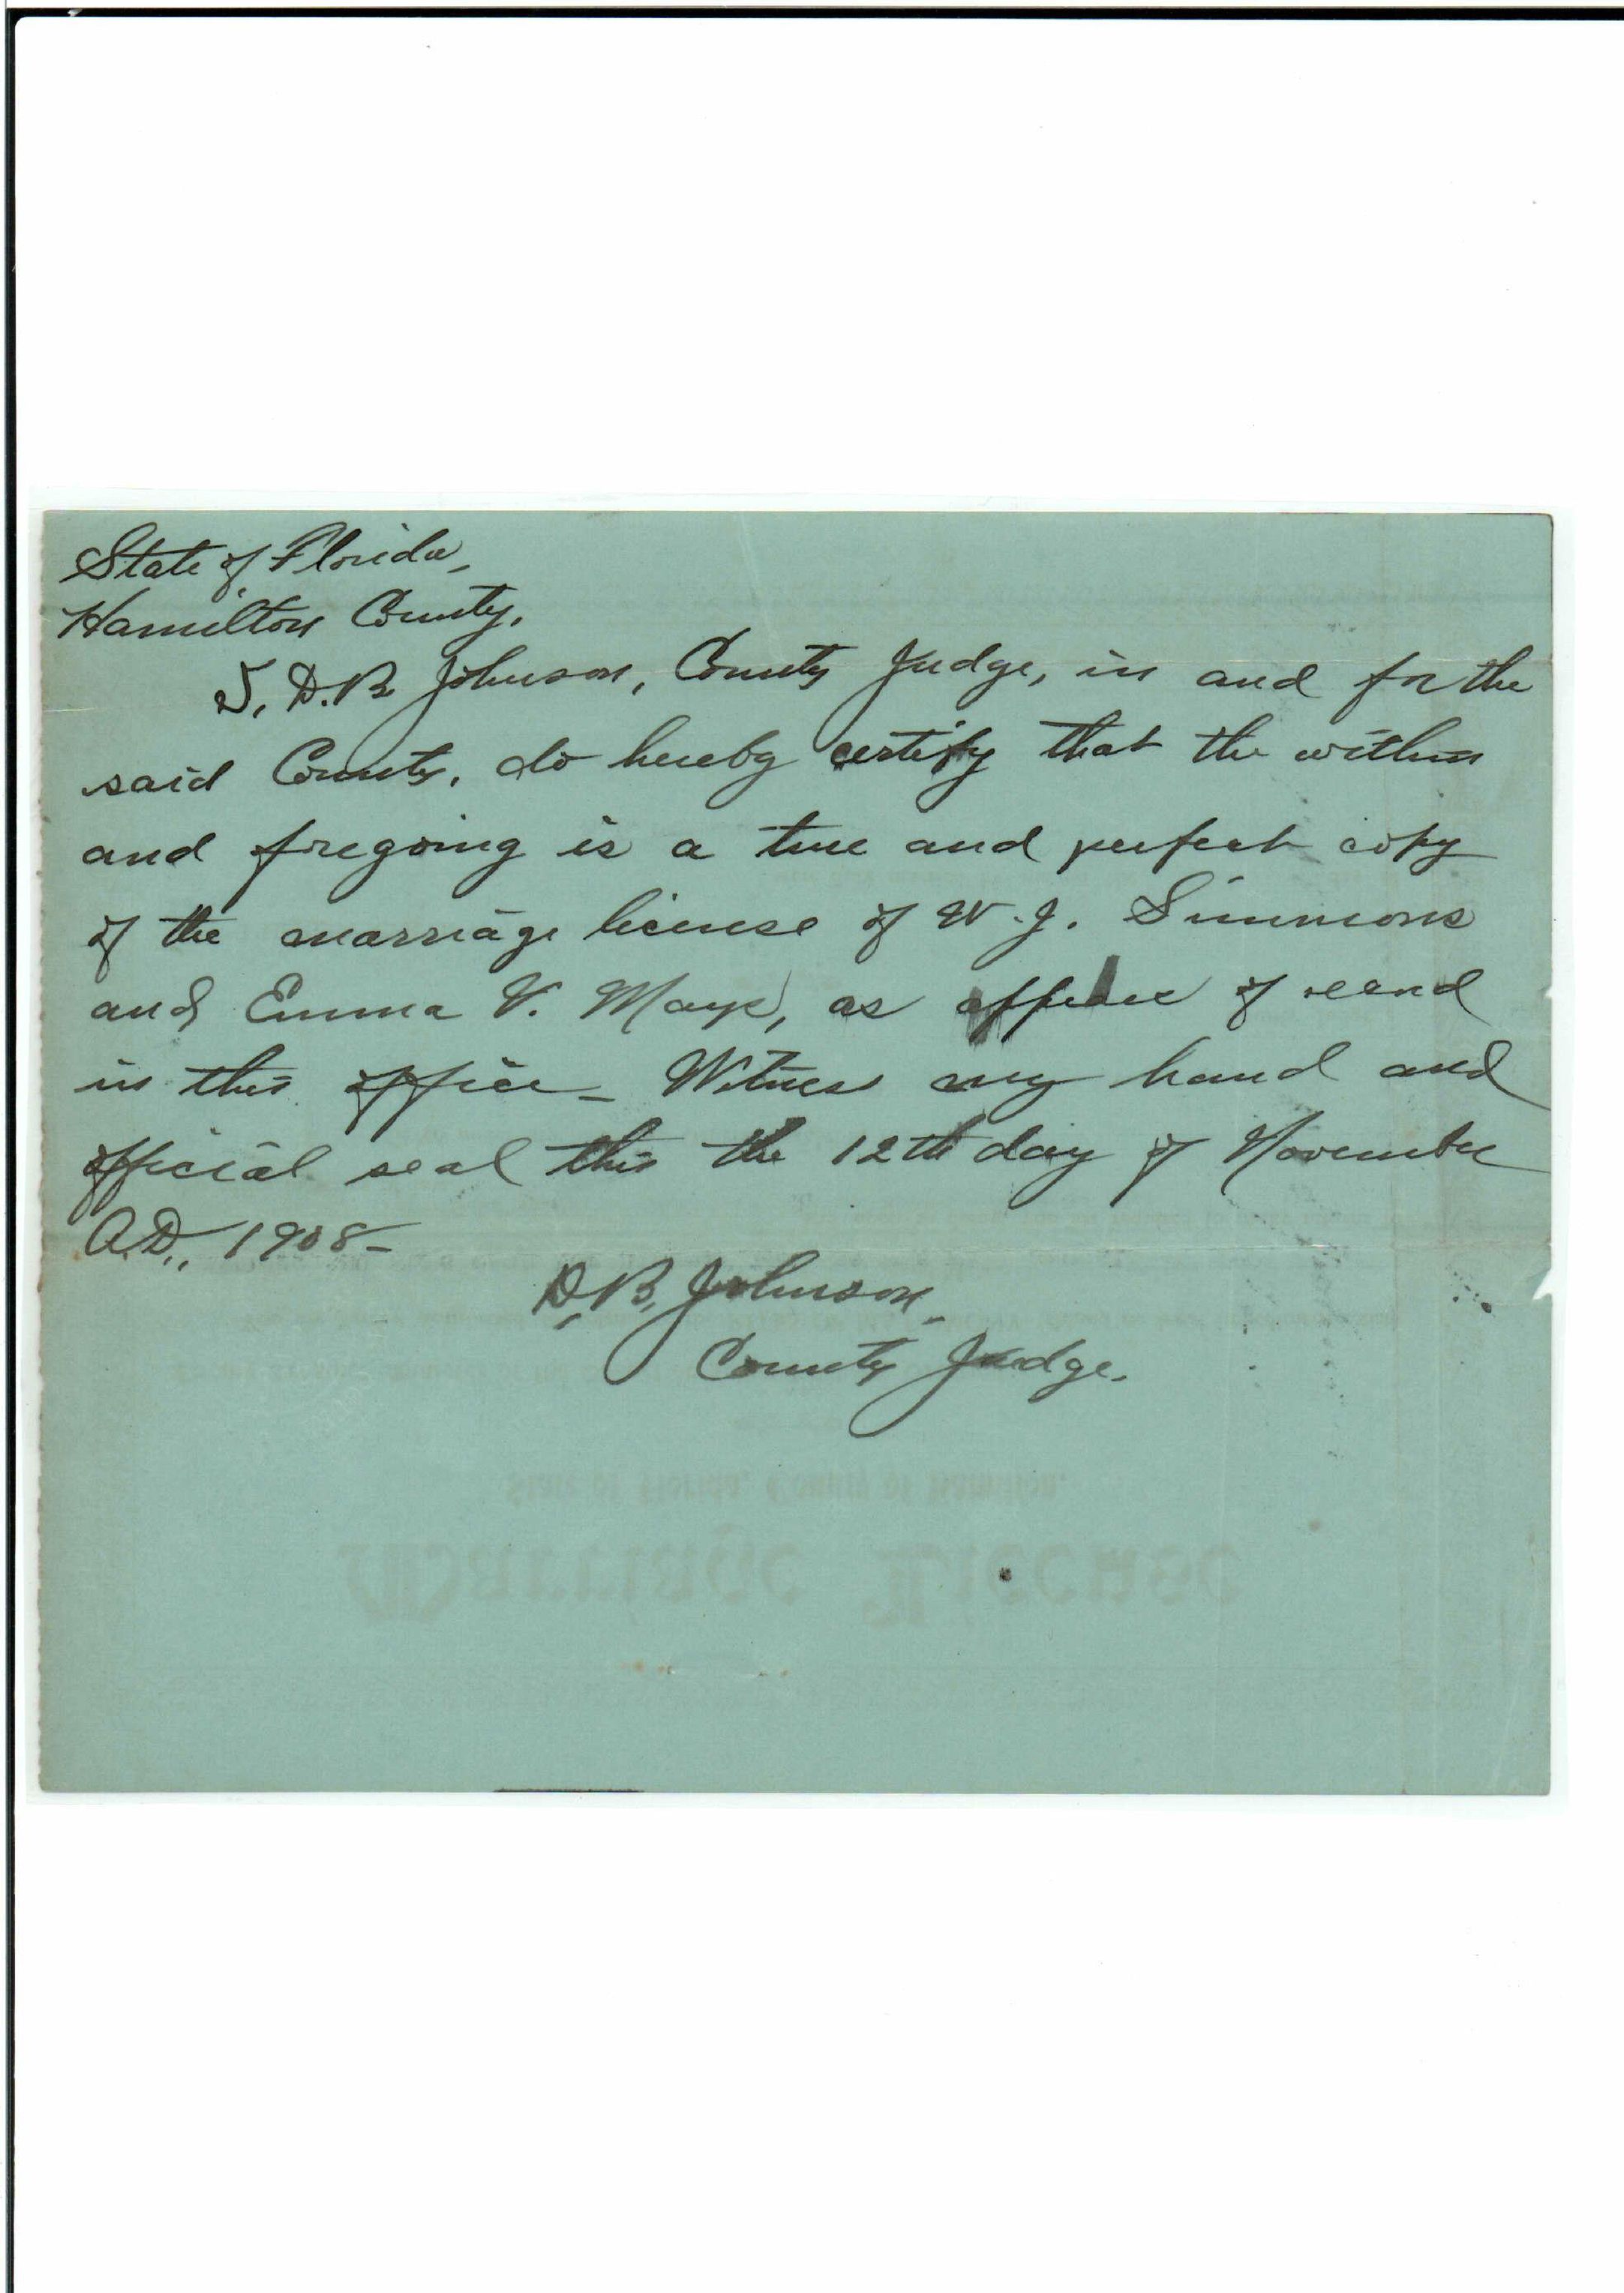 State of Florida,
Hamilton County.
I, D.B. Johnson, County Judge, in and for the
said County, do hereby certify that the within
and foregoing is a true and perfect copy
of the marriage license of W. J. Simmons
and Emma V. Mays, as appears of record
in this office - Witness my hand and
official seal this the 12th day of November
A.D., 1908 -
D.B. Johnson,
County Judge.
State of Florida, County of Hamilton.
Marriage License